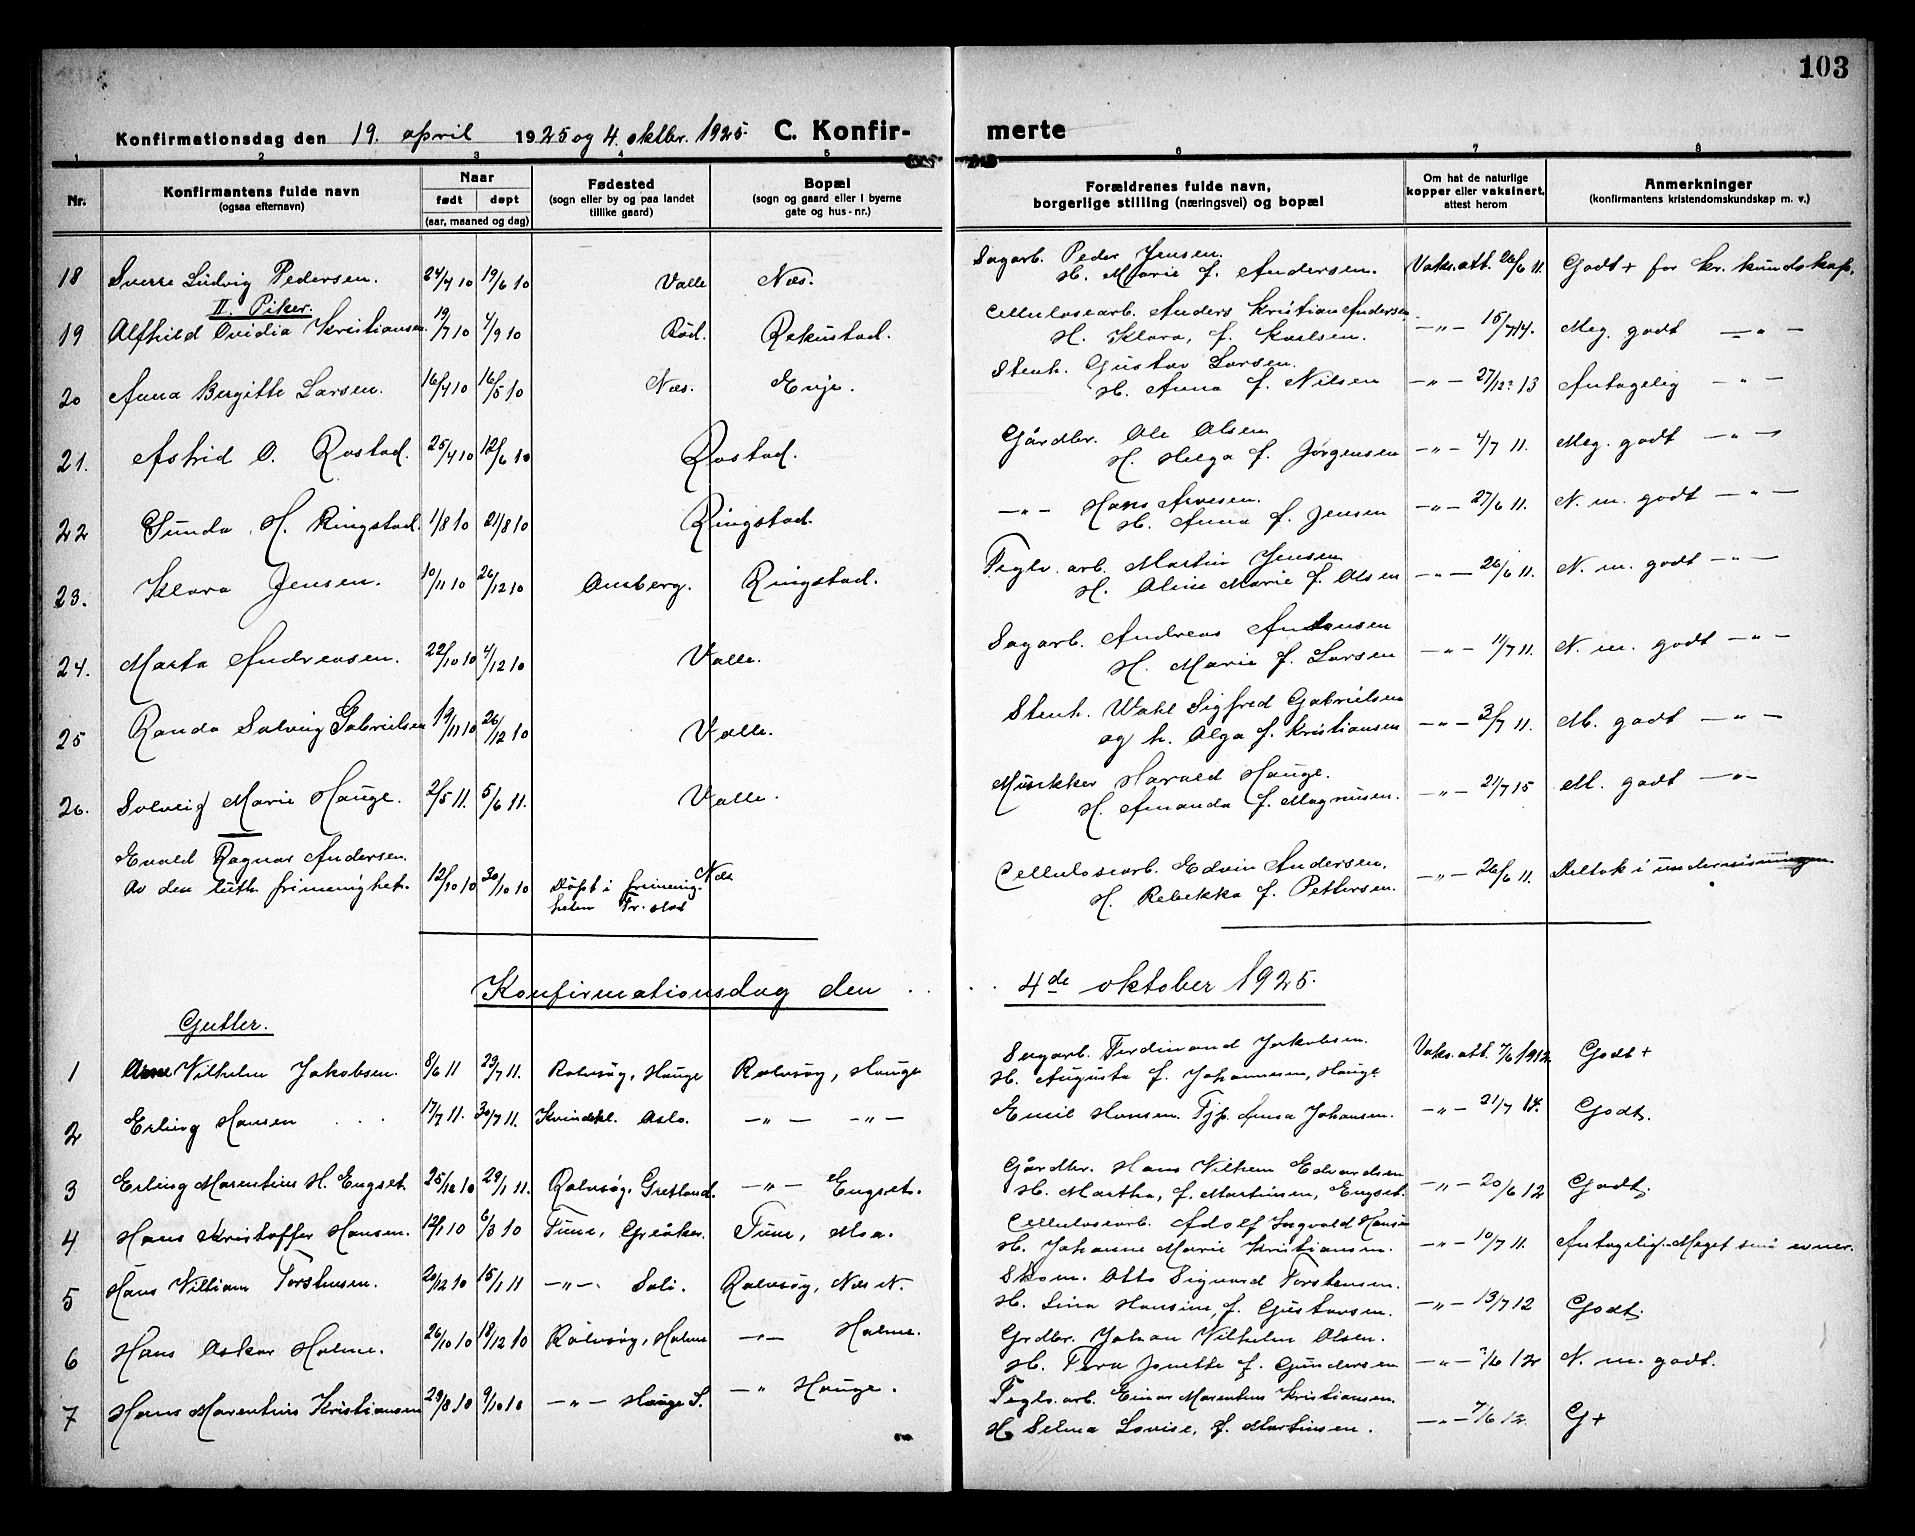 103
Konfirmationsdag den 19. april 1925 og 4. oktbr. 1925. C. Konfirmerte
1 2 3 4 5 6 7 8
Nr. Konfirmantens fulde navn (ogsaa efternavn) Naar født døpt (aar, maaned og dag) Fødested (sogn eller by og paa landet tillike gaard) Bopæl (sogn og gaard eller i byerne gate og hus-nr.) Forældrenes fulde navn, borgerlige stilling (næringsvei) og bopæl Om hat de naturlige kopper eller vaksinert, attest herom Anmerkninger (konfirmantens kristendomskundskap m. v.)
18 Sverre Ludvig Pedersen. 24/4 10 19/6 10 Valle Næs. Sagarb. Peder Jensen. H. Marie f. Andersen. Vaks.att. 26/6 11. Godt + for kr. kundskap.
II. Piker.
19 Alfhild Ovidia Kristiansen. 19/7 10 4/9 10 Rød. Rekustad. Cellulosearb. Anders Kristian Andersen H. Klara, f. Karlsen. —"— 15/7 14. Meg. godt —"—
20 Anna Birgitte Larsen. 16/4 10 16/5 10 Næs. Evje. Stenh. Gustav Larsen. H. Anna f. Nilsen —"— 27/12 13 Antagelig —"—
21. Astrid O. Rostad. 25/4 10 12/6 10 Rostad. Gårdbr. Ole Olsen H. Helga f. Jørgensen —"— 4/7 11. Meg. godt —"—
22 Gunda H. Ringstad. 1/8 10 21/8 10 Ringstad. —"— Hans Arvesen. H. Anna f. Jensen —"— 27/6 11. N. m. godt —"—
23. Klara Jensen. 10/11 10 26/12 10 Amberg. Ringstad. Teglv. arb. Martin Jensen H. Oline Marie f. Olsen —"— 26/6 11. N. m. godt —"—
24. Marta Andreasen. 22/10 10 4/12 10 Valle. Sagarb. Andreas Antonsen H. Marie f. Larsen —"— 11/7 11. N. m. godt —"—
25 Randa Solveig Gabrielsen 19/11 10 26/12 10 Valle. Stenh. Wahl Sigfred Gabrielsen og h. Olga f. Kristiansen —"— 3/7 11. M. godt —"—
26. Solveig Marie Hauge. 2/5 11. 5/6 11. Valle. Musikker Harald Hauge. H. Amanda f. Magnusen. —"— 21/7 15 M. godt —"—
Evald Ragnar Andersen. Av den luth. frimenighet. 12/10 10 30/10 10 Døpt i frimenigheten Fr.stad Næs Cellulosearb. Edvin Andersen. H. Rebekka f. Pettersen. —"— 26/6 11. Deltok i undervisningen
Konfirmationsdag den . . . . 4de oktober 1925.
Gutter.
1 Arne Vilhelm Jakobsen. 8/6 11 29/7 11. Rolvsøy, Hauge Rolvsøy, Hauge Sagarb. Ferdinand Jakobsen. H. Augusta f. Johannesen, Hauge Vaks.att. 7/6 1912. Godt +
2 Erling Hansen 17/7 11. 30/7 11. Kvindekl. Oslo. —"— —"— Emil Hansen. Tjp. Anna Johansen. —"— 21/7 14. Godt.
3 Erling Marentius H. Engset. 25/12 10 29/1 11. Rolvsøy. Gretland. —"— Engset. Gårdbr. Hans Vilhem Edvardsen H. Martha, f. Martinsen, Engset. —"— 20/6 12 Godt.
4 Hans Kristoffer Hansen. 12/1 10 6/3 10 Tune, Greåker. Tune, Moa. Cellulosearb. Adolf Ingvald Hansen H. Johanne Marie Kristiansen. —"— 10/7 11. Antagelig. Meget små evner.
5 Hans William Torstensen. 20/12 10 15/1 11 —"— Soli. Rolvsøy, Næs N. Skom. Otto Sigvard Torstensen. H. Lina Hansine, f. Gustavsen. —"— 13/7 12 Godt.
6 Hans Oskar Holme. 26/10 10 18/12 10 Rolvsøy, Holme —"— Holme. Grdbr. Johan Vilhelm Olsen. H. Tera Josette f. Gundersen —"— 7/6 12 N. m. godt.
7 Hans Marentius Kristiansen 29/8 10 9/10 10 —"— Hauge S. —"— Hauge. Teglv. arb. Einar Marentius Kristiansen. H. Selma Lovise, f. Martinsen. —"— 7/6 12. G +